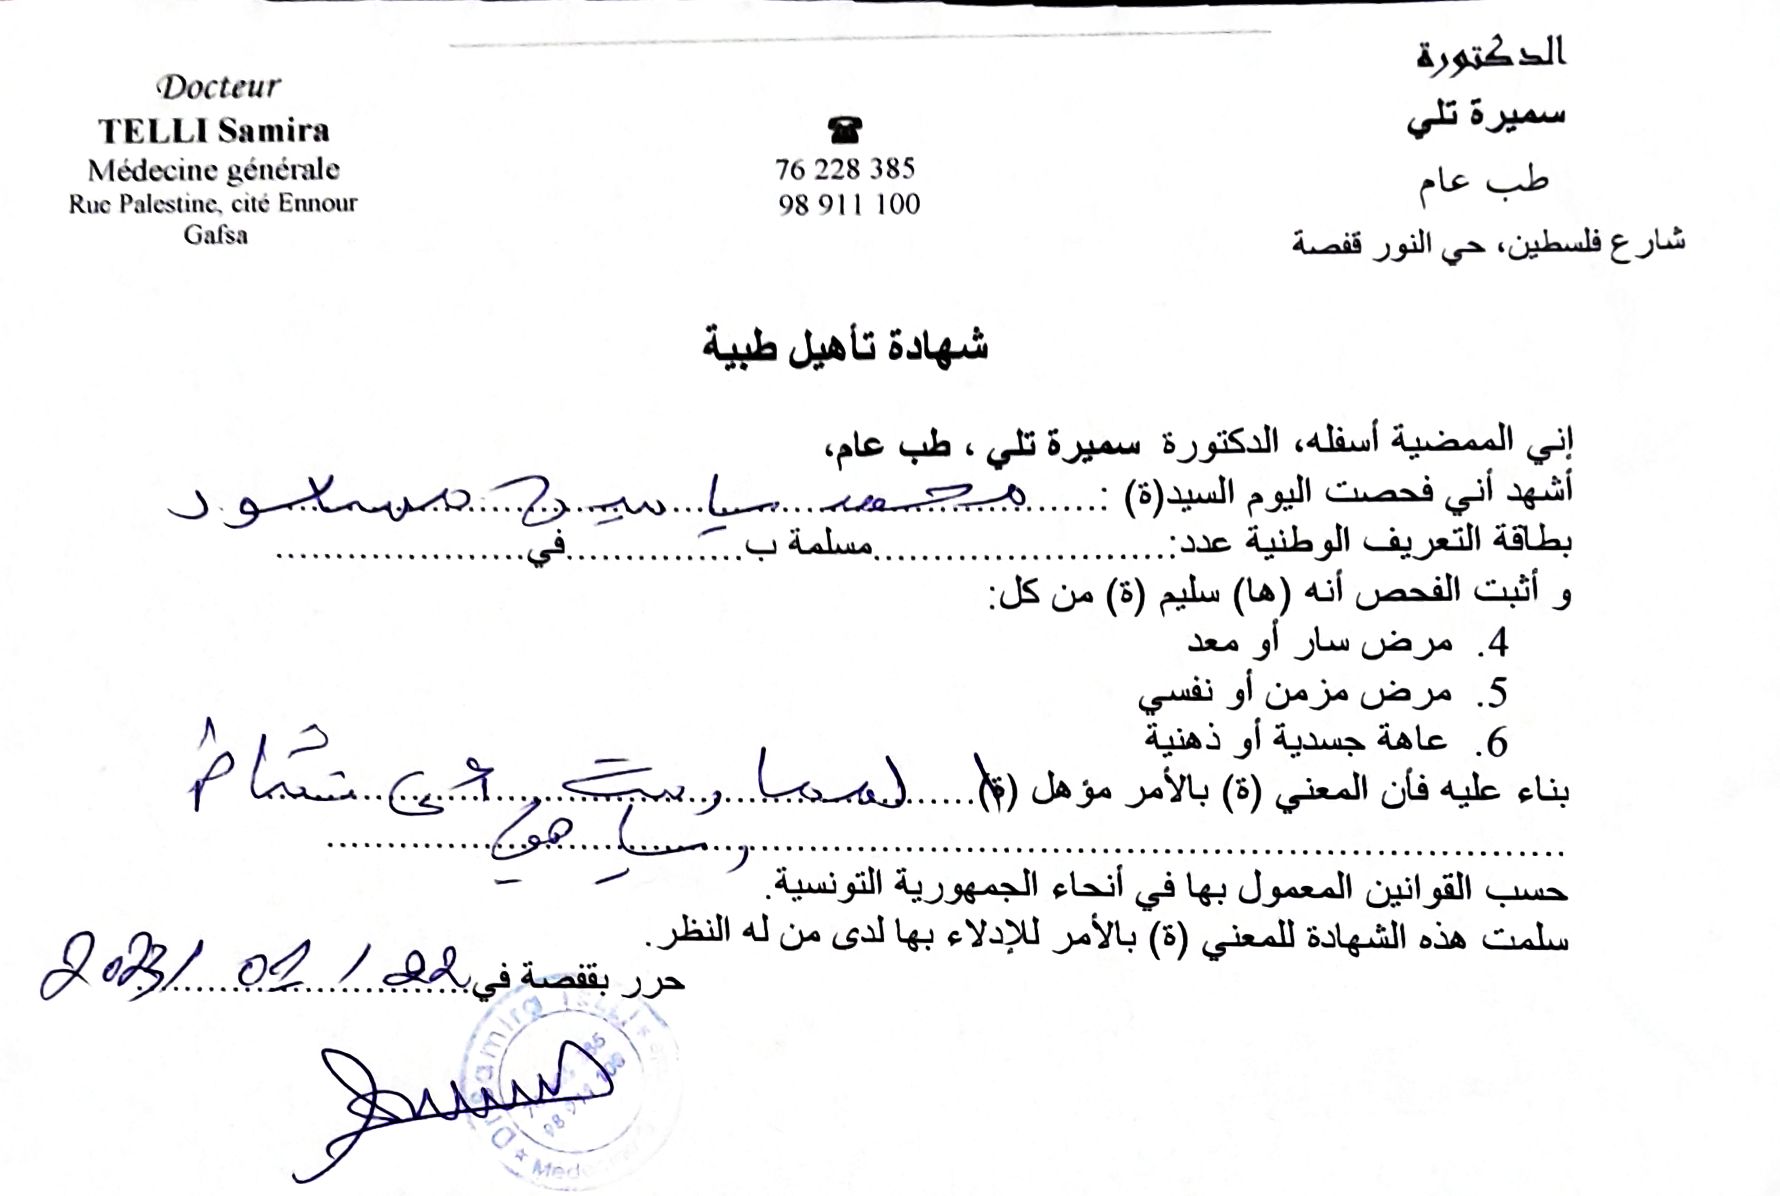 Docteur
TELLI Samira
Médecine générale
Rue Palestine, cité Ennour
Gafsa
76 228 385
98 911 100
الدكتورة
سميرة تلي
طب عام
شارع فلسطين، حي النور قفصة
شهادة تأهيل طبية
إني الممضية أسفله، الدكتورة سميرة تلي ، طب عام،
أشهد أني فحصت اليوم السيد(ة) : محمد ياسين مسعود
بطاقة التعريف الوطنية عدد:..........مسلمة ب..........في..........
و أثبت الفحص أنه (ها) سليم (ة) من كل:
4. مرض سار أو معد
5. مرض مزمن أو نفسي
6. عاهة جسدية أو ذهنية
بناء عليه فأن المعني (ة) بالأمر مؤهل (ة) لممارسة أي نشاط
رياضي
حسب القوانين المعمول بها في أنحاء الجمهورية التونسية.
سلمت هذه الشهادة للمعني (ة) بالأمر للإدلاء بها لدى من له النظر.
حرر بقفصة في 22 / 01 / 2023
Dr Samira TELLI
98 911 100